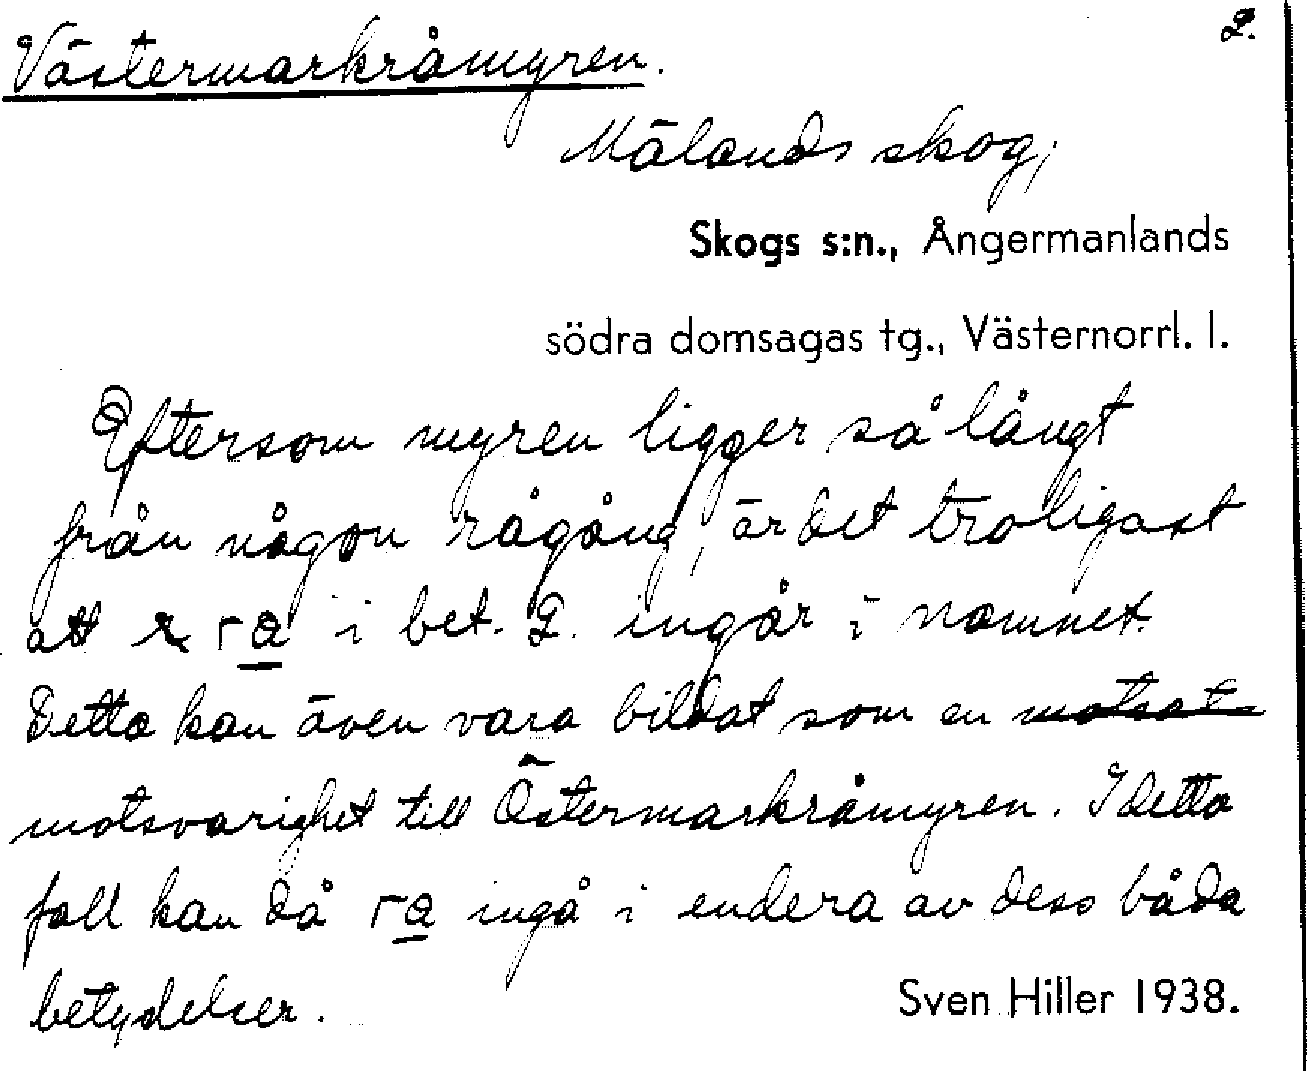 2.
Västermarkråmyren.
Mälands skog,
Skogs s:n., Ångermanlands
södra domsagas tg., Västernorrl. l.
Eftersom myren ligger så långt
från någon rågång, är det troligast
att ra i bet. 2. ingår i namnet.
Detta kan även vara bildat som en motsat-
motsvarighet till Östermarkråmyren. I detta
fall kan då ra ingå i endera av dess båda
betydelser.
Sven Hiller 1938.